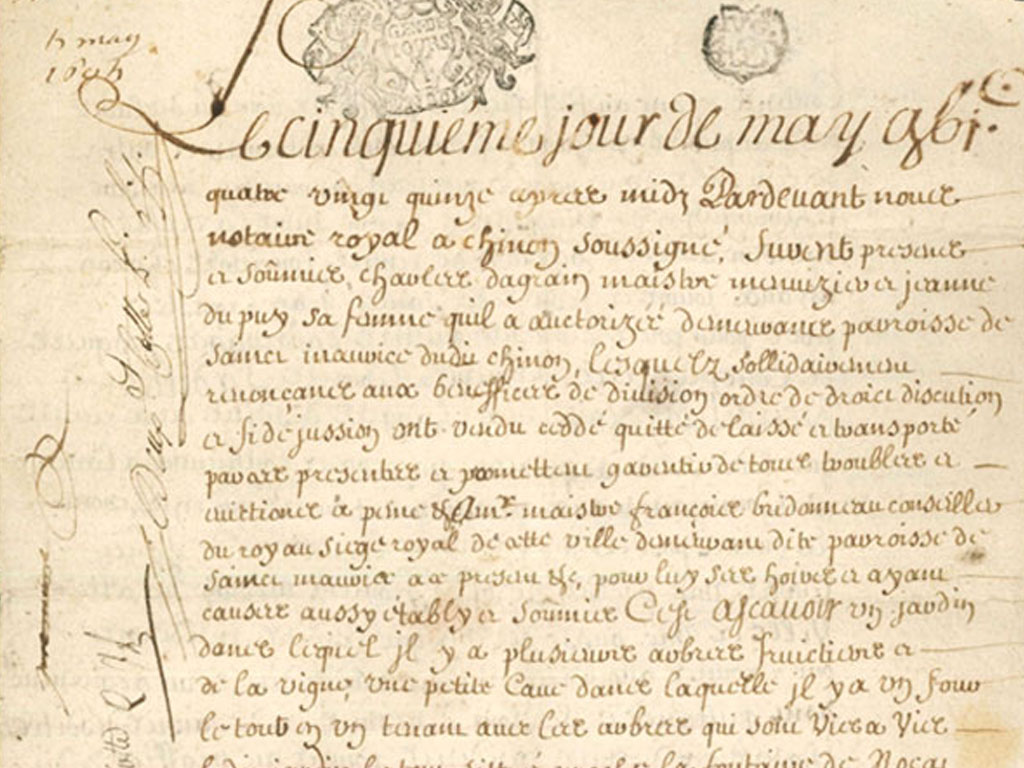 5 may
1695
Le cinquiéme jour de may gbi.c
quatre vingt quinze apres midy Pardevant nous
notaire royal a chinon soussigné, furent presens
et soumis, charles dagrain maistre menuizier et jeanne
du puy sa femme quil a auctorizée demeurans parroisse de
sainct maurice dudit chinon, lesquelz sollidairement
renonçans aux beneffices de division ordre de droict discution
et fidéjussion ont vendu ceddé quitté delaissé et transporté
par ces presentes et promettent garentir de tous troubles et
evictions a peine &c a Mr. maistre françois bridonneau conseiller
du roy au siege royal de cette ville demeurant dite parroisse de
sainct maurice a ce present &c, pour luy ses hoirs et ayans
causes aussy étably et soumis C'est ascavoir un jardin
dans lequel jl y a plusieurs arbres fruictiers et
de la vigne, une petite cave dans laquelle jl y a un four
le tout en un tenant avec les arbres qui sont vis a vis
la fontaine de